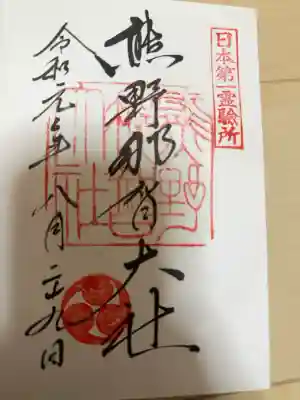 日本第一霊驗所
熊野那智大社
令和元年八月二十九日